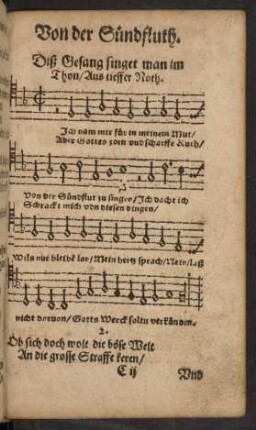 Von der Sündfluth.
Diß Gesang singet man im
Thon/ Aus tieffer Noth.
Ich nam mir für in meinem Mut/
Aber Gottes zorn und scharffe Ruth/
Von der Sündflut zu singen/ Ich dacht ich
Schrackt mich von diesen dingen/
Wils nur bleibē lan/ Mein hertz sprach/ Nein/ laß
nicht daruon/ Gotts Werck soltu verkünden.
2.
Ob sich doch wolt die böse Welt
An die grosse Straffe keren/
C ij
Vnd